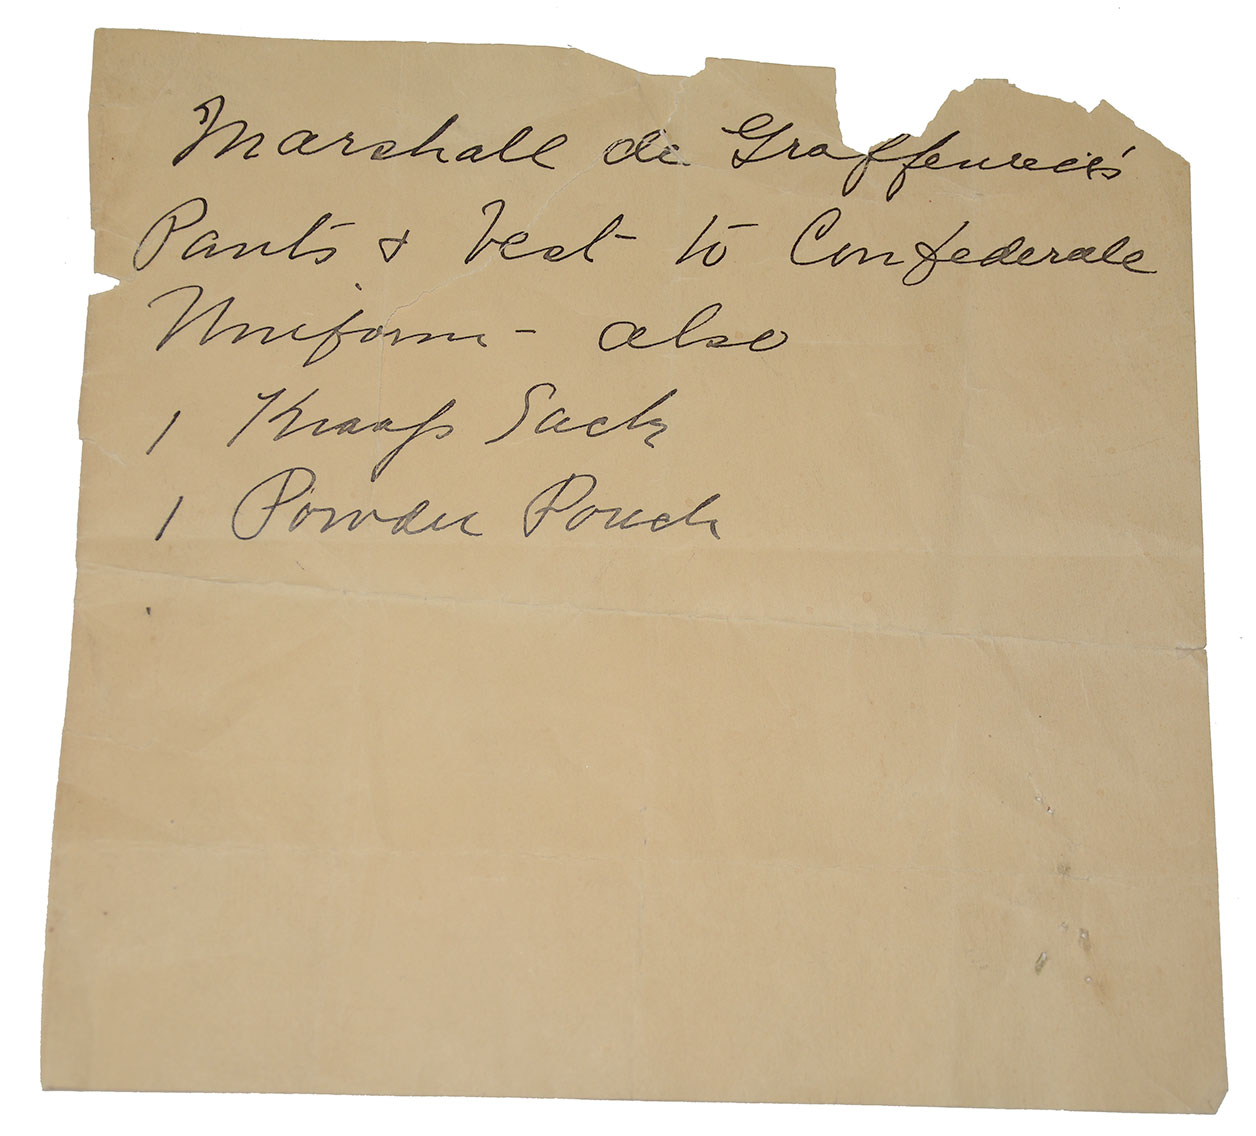 Marshall de Graffenreid's
Pants & Vest to Confederate
Uniform - also
1 Knap Sack
1 Powder Pouch